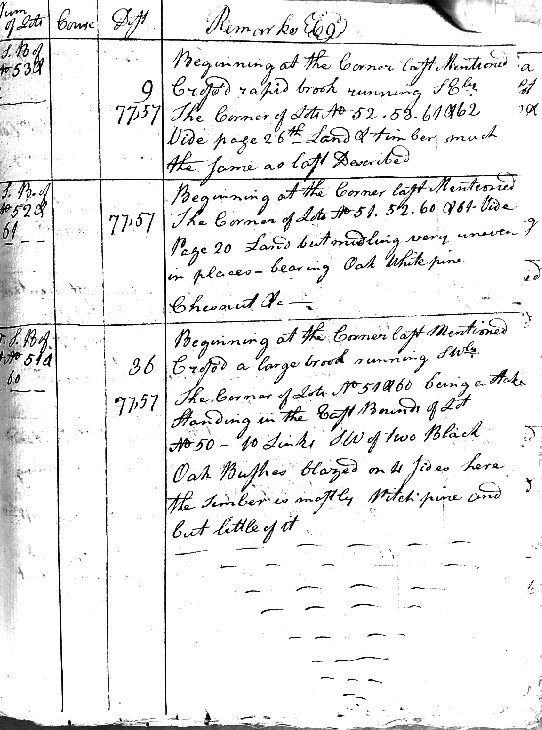 Num of Lots Course Dist Remarks &c
S. B of No 53 & Beginning at the Corner last Mentioned
9 Crossd rapid brook running SEly
77,57 The Corner of Lots No 52.53.61 & 62
Vide page 26th Land & timber much
the same as last Described
S. B. of No 52 & 61 Beginning at the Corner last Mentioned
77,57 The Corner of Lots No 51. 52. 60 & 61 Vide
Page 20 Land but midling very uneven
in places - bearing Oak White pine
Chesnut &c
S. B of No 51 & 60 Beginning at the Corner last Mentioned
36 Crossd a large brook running SWly
77,57 The Corner of Lots No 51 & 60 being a Stake
Standing in the East Bounds of Lot
No 50 - 10 Links SW of two Black
Oak Bushes blazed on 4 sides here
the timber is mostly Pitch pine and
but little of it